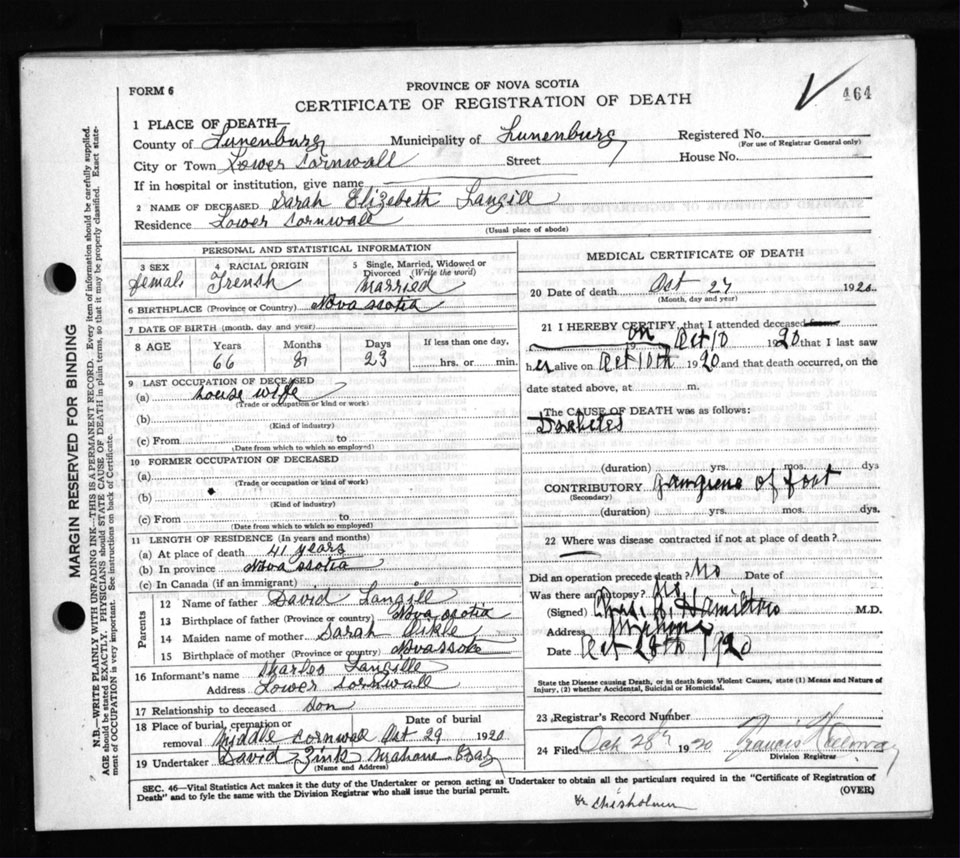 FORM 6
PROVINCE OF NOVA SCOTIA
CERTIFICATE OF REGISTRATION OF DEATH
464
1 PLACE OF DEATH—
County of Lunenburg Municipality of Lunenburg Registered No.
(For use of Registrar General only)
City or Town Lower Cornwall Street House No.
If in hospital or institution, give name
2 NAME OF DECEASED Sarah Elizebeth Langill
Residence Lower Cornwall
(Usual place of abode)
PERSONAL AND STATISTICAL INFORMATION
3 SEX 4 RACIAL ORIGIN 5 Single, Married, Widowed or Divorced (Write the word)
female French Married
6 BIRTHPLACE (Province or Country) Nova scotia
7 DATE OF BIRTH (month, day and year)
8 AGE Years Months Days If less than one day,
66 8 23 hrs. or min.
9 LAST OCCUPATION OF DECEASED
(a) house wife
(Trade or occupation or kind of work)
(b)
(Kind of industry)
(c) From to
(Date from which to which so employed)
10 FORMER OCCUPATION OF DECEASED
(a)
(Trade or occupation or kind of work)
(b)
(Kind of industry)
(c) From to
(Date from which to which so employed)
11 LENGTH OF RESIDENCE (In years and months)
(a) At place of death 41 years
(b) In province Nova scotia
(c) In Canada (if an immigrant)
Parents
12 Name of father David Langill
13 Birthplace of father (Province or country) Nova scotia
14 Maiden name of mother Sarah
15 Birthplace of mother (Province or country) Novascotia
16 Informant's name Charles Langille
Address Lower cornwall
17 Relationship to deceased Son
18 Place of burial, cremation or removal Middle Cornwall Date of burial Oct 29 1920
19 Undertaker David Zink Mahone Bay
(Name and Address)
MEDICAL CERTIFICATE OF DEATH
20 Date of death Oct 27 1920
(Month, day and year)
21 I HEREBY CERTIFY, that I attended deceased from
on Oct 10 1920 that I last saw
her alive on Oct 10th 1920 and that death occurred, on the
date stated above, at m.
The CAUSE OF DEATH was as follows:
Diabetes
(duration) yrs. mos. dys
CONTRIBUTORY gangrene of foot
(Secondary)
(duration) yrs. mos. dys.
22 Where was disease contracted if not at place of death?
Did an operation precede death? No Date of
Was there an autopsy? No
(Signed) Hamilton M.D.
Address Mahone
Date Oct 28th 1920
State the Disease causing Death, or in death from Violent Causes, state (1) Means and Nature of
Injury, (2) whether Accidental, Suicidal or Homicidal.
23 Registrar's Record Number
24 Filed Oct 28th 1920 Francis
Division Registrar
SEC. 46—Vital Statistics Act makes it the duty of the Undertaker or person acting as Undertaker to obtain all the particulars required in the "Certificate of Registration of
Death" and to fyle the same with the Division Registrar who shall issue the burial permit. (OVER)
Chisholm
MARGIN RESERVED FOR BINDING
N.B.—WRITE PLAINLY WITH UNFADING INK—THIS IS A PERMANENT RECORD. Every item of information should be carefully supplied.
AGE should be stated EXACTLY. PHYSICIANS should STATE CAUSE OF DEATH in plain terms, so that it may be properly classified. Exact statement of OCCUPATION is very important. See instructions on back of Certificate.